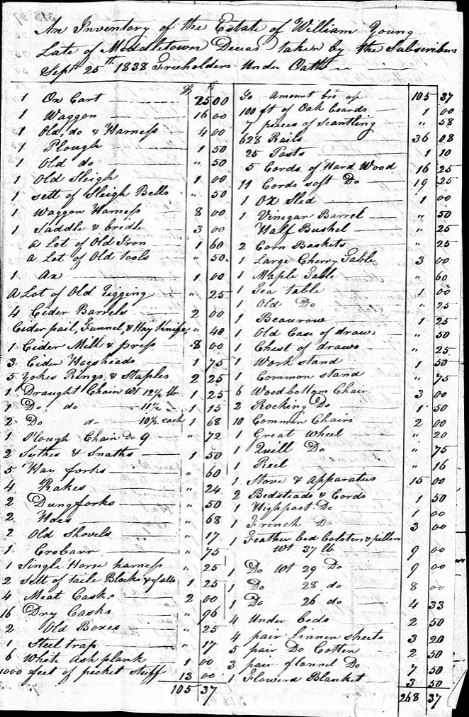 An Inventory of the Estate of William Young
Late of Middletown Decas taken by the Subscribers
Sept 25th 1838 Freeholders Under Oath
1 Ox Cart 25 00
1 Waggon 16 00
1 Old do & Harness 4 00
1 Plough 1 50
1 Old do " 50
1 Old Sleigh 1 00
1 sett of Sleigh Bells " 50
1 Waggon Harness 8 00
1 Saddle & bridle 3 00
a Lot of Old Iron 1 60
a Lot of Old tools " 50
1 Ax 1 00
A Lot of Old Rigging " 25
4 Cider Barrels 2 00
Cider pail, Tunnel, & Hay " 40
1 Cider Mill & press 8 00
3 Cider Hogsheads 1 75
5 Yokes Rings, & Staples 2 25
1 Draught Chain Wt 12½ lb 1 25
1 Do do 11½ 1 15
2 Do do 10½ each 1 68
1 Plough Chain Do 9 " 72
2 Sithes & Snaths 1 50
5 Hay forks " 60
4 Rakes " 24
2 Dungforks " 50
2 Hoes " 68
2 Old Shovels " 17
1 Crobarr " 75
1 Single Horse harness " 25
2 Sett of tacle Blocks & falls 1 25
4 Meat Casks 2 00
16 Dry Casks " 96
2 Old Boxes " 25
1 Steel trap " 17
6 White Ash plank 1 00
1000 feet of picket Stuff 13 00
105 37
To Amount bt up 105 37
100 ft of Oak boards 1 00
7 pieces of Scantling " 58
628 Rails 36 08
25 Posts 1 10
5 Cords of Hard Wood 16 25
11 Cords soft Do 19 25
1 Ox Sled 1 00
1 Vinegar Barrel " 50
Half Bushel " 25
2 Corn Baskets " 25
1 Large Cherry Table 3 00
1 Maple Table " 60
1 Tea table 1 00
1 Old Do " 25
1 Beaurow 1 25
1 Old Case of draws " 50
1 Chest of draws " 25
1 Work stand 1 50
1 Common stand " 75
6 Wood bottom Chair 3 00
2 Rocking Do 1 50
10 Common Chairs 2 00
1 Great wheel " 20
1 Quill Do " 75
1 Reel " 16
1 Stove & Apparatus 15 00
2 Bedsteads & Cords 1 50
1 Highpost Do 1 00
1 French Do 3 00
1 Feather bed bolster & pillows
Wt 37 lb 9 00
1 Do Wt 29 Do 9 00
1 Do 28 do 8 00
1 Do 26 do 4 33
4 Under beds 2 50
4 pair Linnen sheets 3 20
5 pair Do Cotton 2 50
3 pair flannel Do 7 50
1 Flowerd Blanket 3 50
268 37